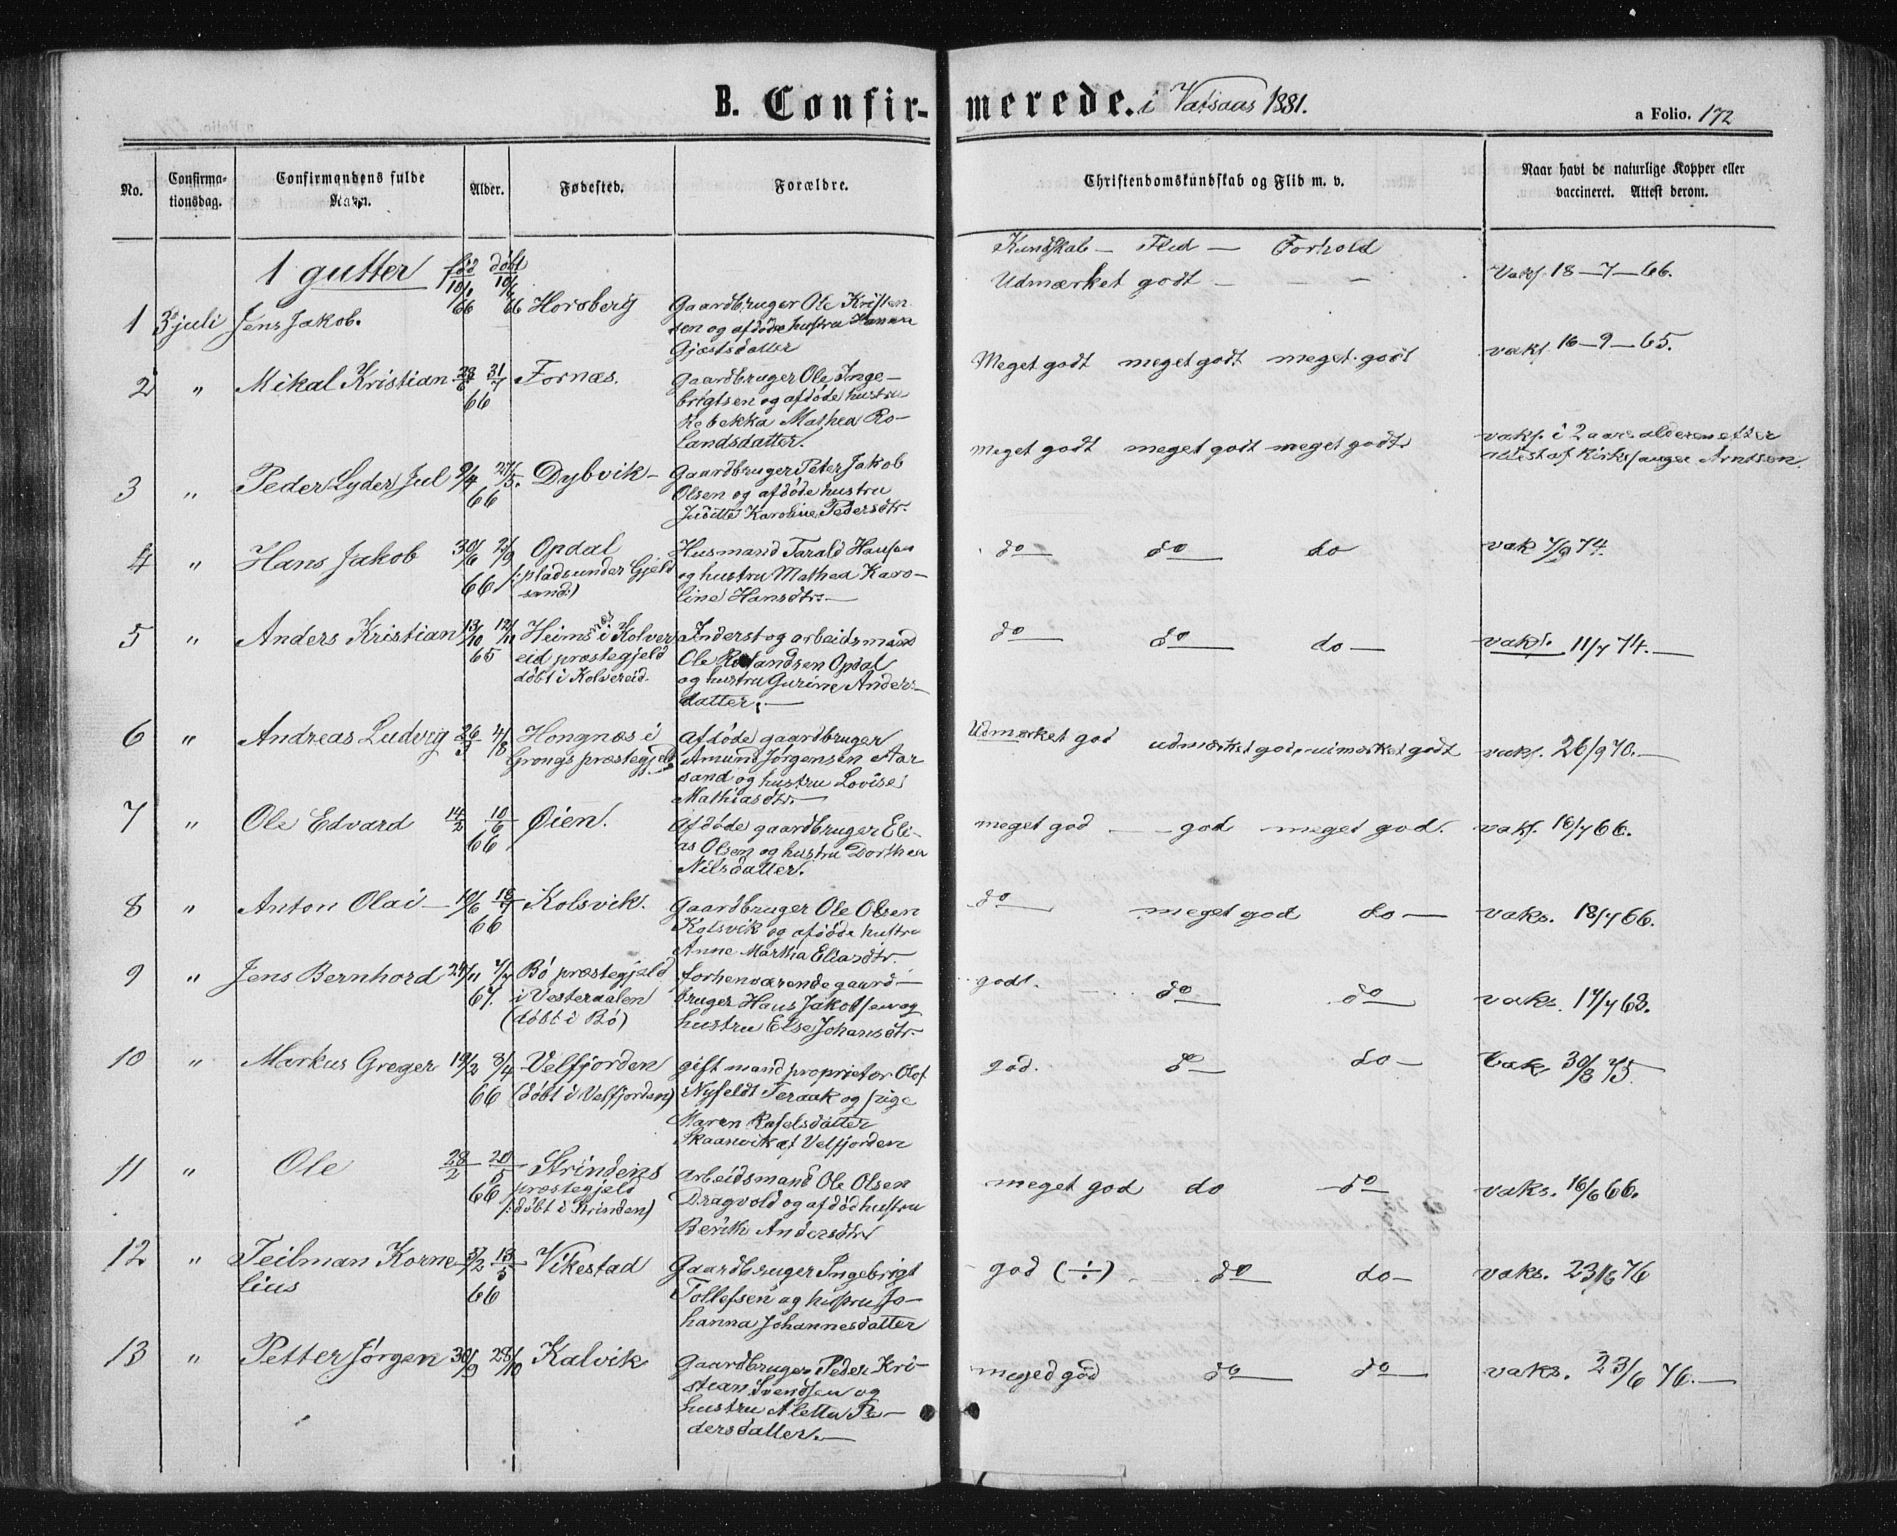 B. Confir- merede. i Vatsaas 1881.
a Folio. 172
No.
Confirma-
tionsdag.
Confirmandens fulde
Navn.
Alder.
Fødested.
Forældre.
Christendomskundskab og Flid m. v.
Naar havt de naturlige Kopper eller
vaccineret. Attest derom.
1 gutter
fød døbt
Kundskab - Flid - Forhold
1 3 juli Jens Jakob. 10/1 66 10/6 66 Horsberg
Gaardbruger Ole Kristen
sen og afdøde hustru Hanna
Gjæstsdatter
Udmærket godt - - -
Vaks. 18-7-66.
2 " Mikal Kristian 28/6 31/7 66 Fornæs.
gaardbruger Ole Inge-
brigtsen og afdøde hustru
Rebekka Mathea Ro-
landsdatter.
Meget godt meget godt meget godt
vaks. 16-9-65.
3 " Peder Lyder Jul 9/4 27/5. 66 Dybvik-
Gaardbruger Peter Jakob
Olsen og afdøde hustru
Judithe Karoline Pedersdtr.
meget godt meget godt meget godt
vaks. i 2 aars alderen efter
attest af Kirkesanger Arntsen
4 " Hans Jakob 30/6 2/9 66 Opdal
/: plads under Gjeld
sand:)
Husmand Tarald Hansen
og hustru Mathea Karo-
line Hansdtr-
do do do
vak 7/9 74.
5 " Anders Kristian 13/10 12/11 65 Heimsnes i Kolver
eid præstegjeld
døbt i Kolvereid.
Inderst og arbeidsmand
Ole Rolandsen Opdal
og hustru Gurine Anders-
datter.-
do do do -
vaks. 11/7 74.-
6 " Andreas Ludvig 26/3 4/8 Hongnæs i
Grongs præstegjeld
Afdøde gaardbruger
Amund Jørgensen Aar
sand og hustru Lovise
Mathiasdtr.-
Udmærket god udmærket god udmærket godt
vaks. 26/9 70.-
7 " Ole Edvard 14/2 10/6 66 Øien.
Afdøde gaardbruger Eli-
as Olsen og hustru Dorthea
Nilsdatter.
meget god - - god meget god.
vaks. 16/7 66.
8 " Anton Olai - 10/6 18/7 66 Kolsvik.
Gaardbruger Ole Olsen
Kolsvik og afdøde hustru
Anne Martha Eliasdtr.
do meget god do -
vaks. 18/7 66.
9 " Jens Bernhord 24/11 7/7 67. Bø præstegjeld
i Vesteraalen
(døbt i Bø)
forhenværende gaard-
bruger Hans Jakobsen og
hustru Else Johansdtr.
godt. do do
vaks. 17/7 68.
10 " Markus Greger 19/2 8/4 66 Velfjorden
(døbt i Velfjorden)
gift mand proprietær Olaf
Nyfeldt Teraak og pige
Maren Rafelsdatter
Skaanvik af Velfjorden
god. do do -
Vak 30/8 75.
11 " Ole 28/2 20/5 66 Strindens
præstegjeld
/: døbt i Strinden)
arbeidsmand Ole Olsen
Dragvold og afdød hustru
Berith Andersdtr
meget god do do
vaks. 16/6 66.
12 " Teilman Korne-
lius 5/2 13/5 66 Vikestad
Gaardbruger Ingebrigt
Tollefsen og hustru Jo-
hanna Johannesdatter
god (÷) do do -
vaks. 23/6 76
13 " Petter Jørgen 30/9 28/10 Kalvik
Gaardbruger Peder Kri-
stian Svendsen og
hustru Aletta Pe-
dersdatter.-
meged god do do -
vaks. 23/6 76.-